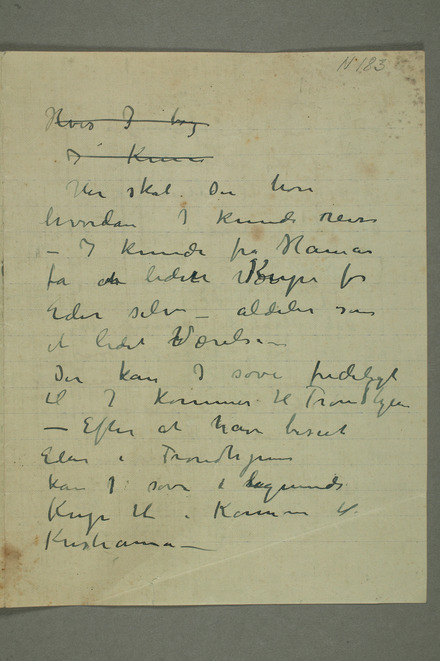 N 183
Hvis I tog
I Kun
Her skal Du høre
hvordan I kunde reise
– I kunde fra Hamar
få en liden Kupe for
Eder selv – aldeles som
et lidet Værelse –
Der kan I sove fredeligt
til I kommer til Trondhjem
– Efter at have beseet
Elen i Trondhjem
kan I sove i lignende
Kupe til I kommer til
Kristiania –